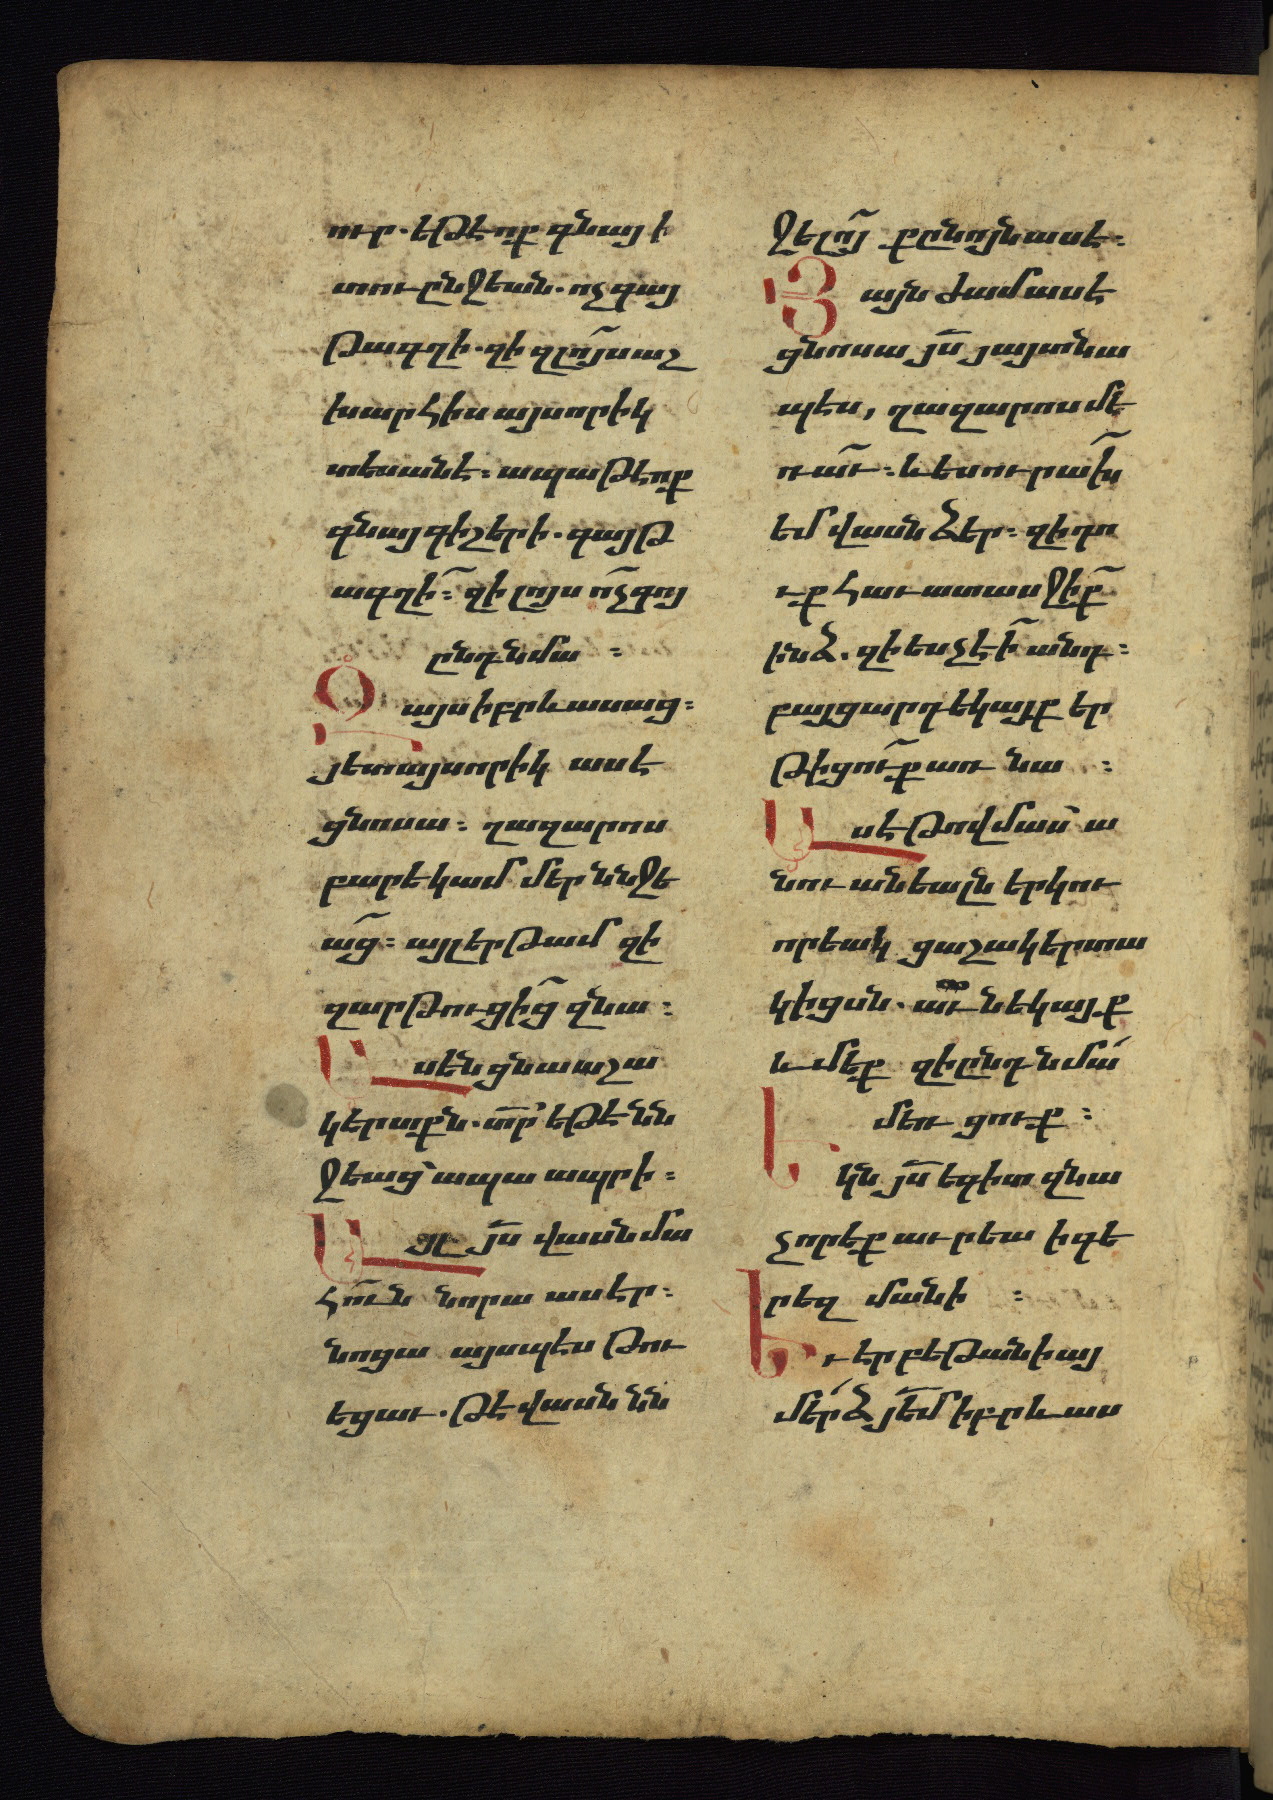 ուր. եթէ ոք գնայ ի
տուընջեան. ոչ գայ
թագղի. զի զլոյս աշ
խարհիս այսորիկ
տեսանէ: ապա թէ ոք
գնայ գիշերի. գայթ
ագղի: զի լոյս ոչ գոյ
ընդ նմա:
Զայս իբրև ասաց:
յետ այսորիկ ասէ
ցնոսա: ղազարոս
բարեկամ մեր ննջե
աց: այլ երթամ զի
զարթուցից զնա:
Ասեն ցնա աշա
կերտքն. տր եթէ նն
ջեաց՝ ապա ապրի:
Այլ յս վասն մա
հուն նորա ասէր:
նոցա այսպէս թու
եցաւ. թէ վասն նն
ջելոյ քընոյն ասէ:
Յայնժամ ասէ
ցնոսա յս յայտնա
պես, ղազարոս մե
ռաւ: և ես ուրախ
եմ վասն ձեր: զի դո
ւք հաւատասջիք
ինձ. զի ես չէի անդ:
բայց արդ եկայք եր
թիցուք առ նա:
Ասէ թովմաս՝ ա
նուանեալն երկու
որեակ ցաշակերտա
կիցսն. եկայք
և մեք զի ընդ նմա
մեռցուք:
Եկն յս եգիտ զնա
չորեքաւրեա ի գե
րեզմանի:
Եւ էր բեթանիայ
մերձ յեմ իբրև աս